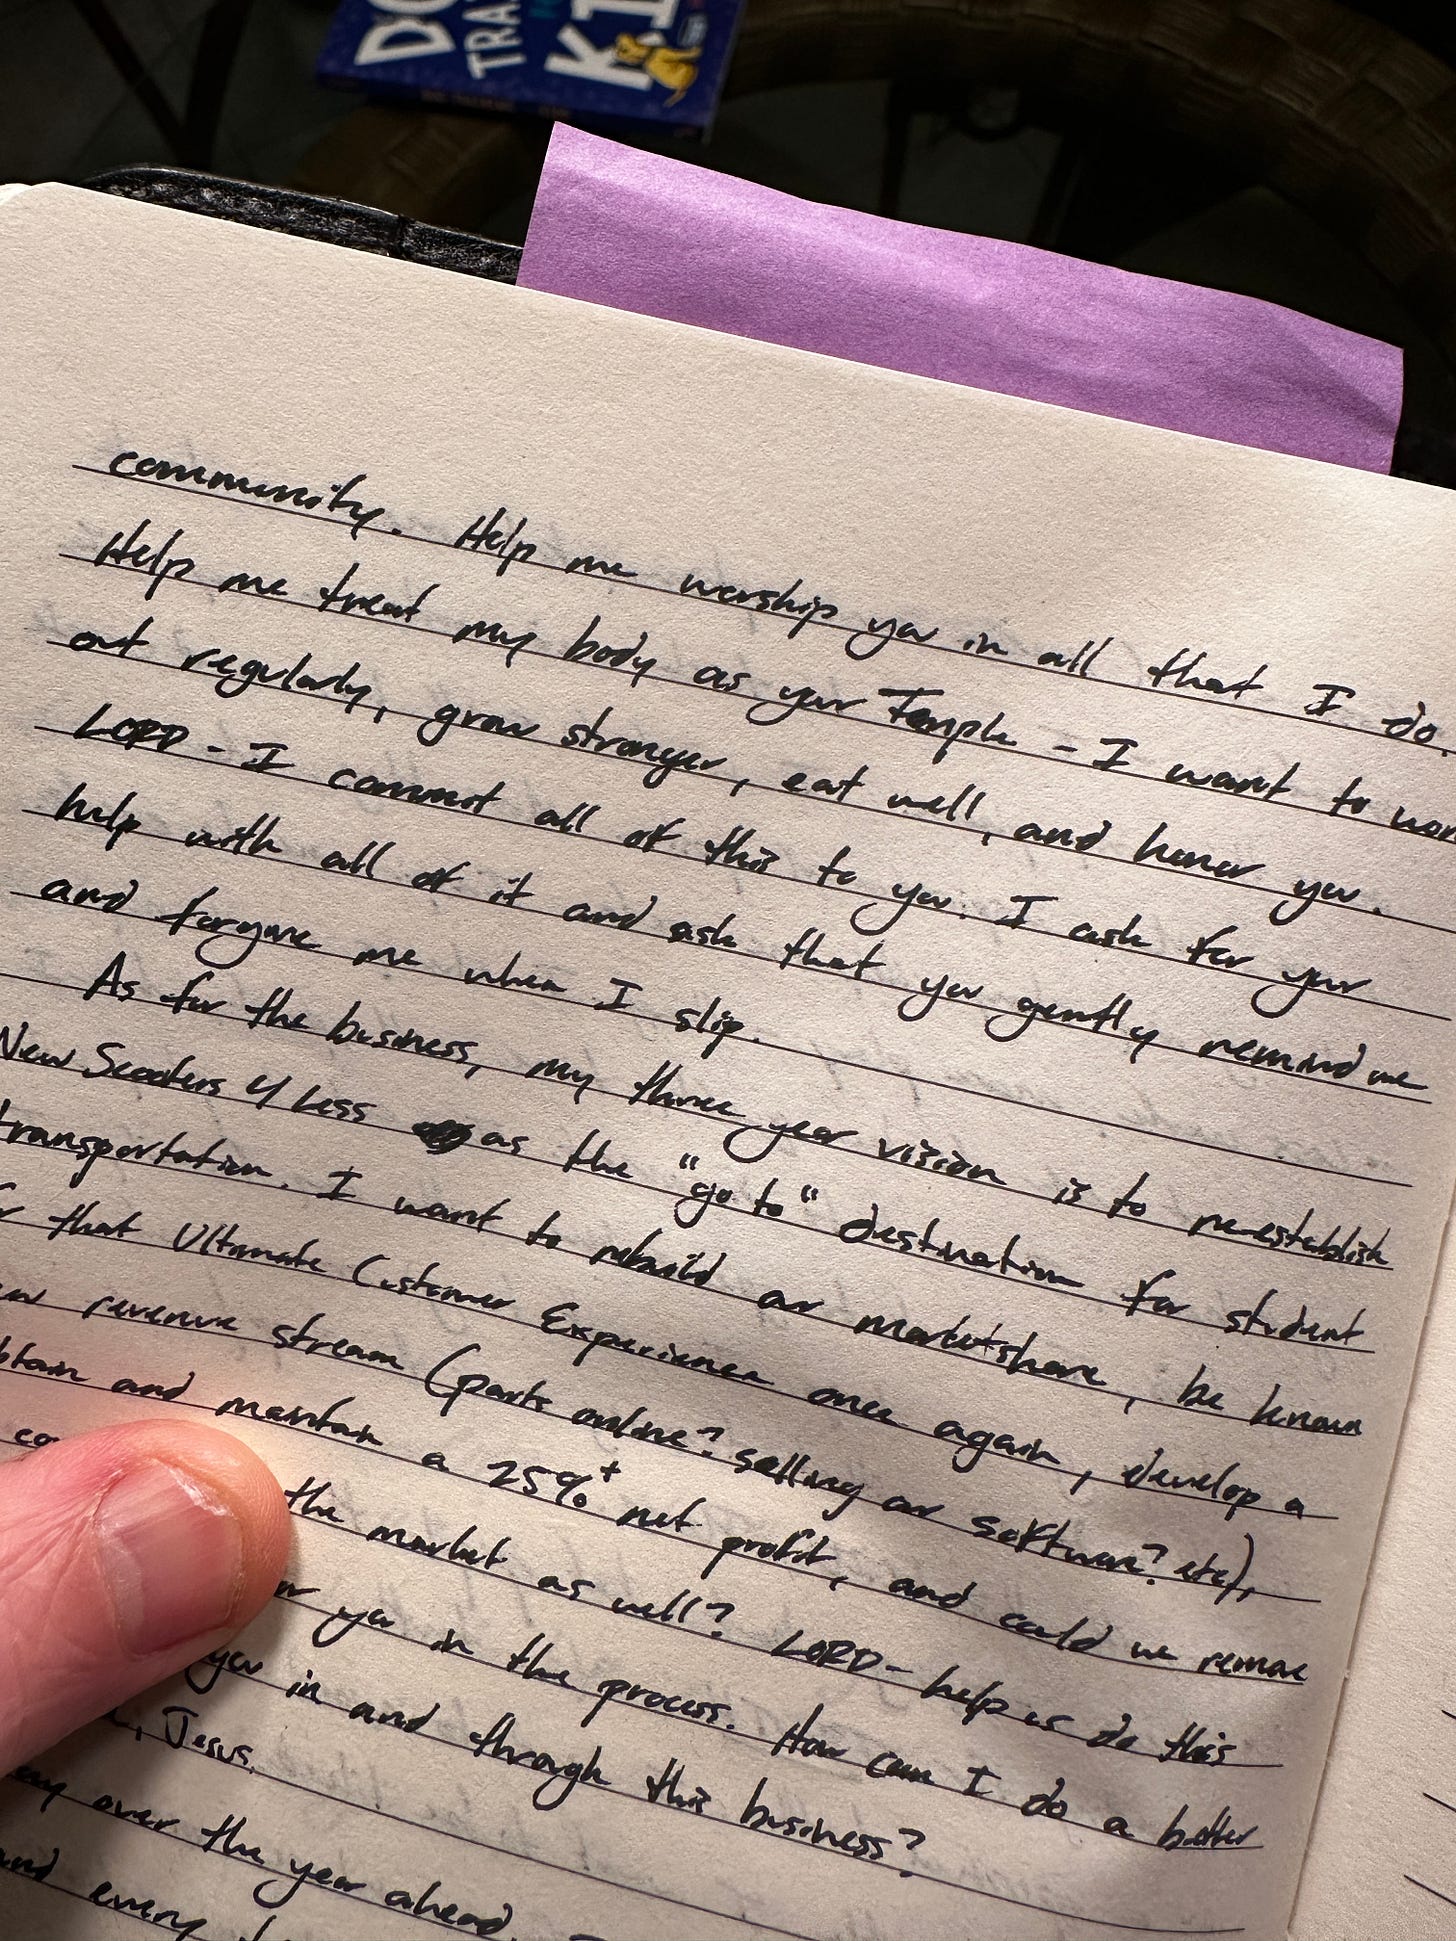 DO
TRA
K1
community. Help me worship you in all that I do.
Help me treat my body as your Temple - I want to
out regularly, grow stronger, eat well, and honor you.
LORD - I commit all of this to you. I ask for your
help with all of it and ask that you gently remind me
and forgive me when I slip.
As for the business, my three year vision is to re-establish
New Scooters 4 Less as the "go to" destination for student
transportation. I want to rebuild our marketshare, be known
for that Ultimate Customer Experience once again, develop a
new revenue stream (parts online? selling our software? etc),
obtain and maintain a 25%+ net profit, and could we remove
the market as well? LORD - help us do this
you in the process. How can I do a better
you in and through this business?
Jesus.
over the year ahead.
and every